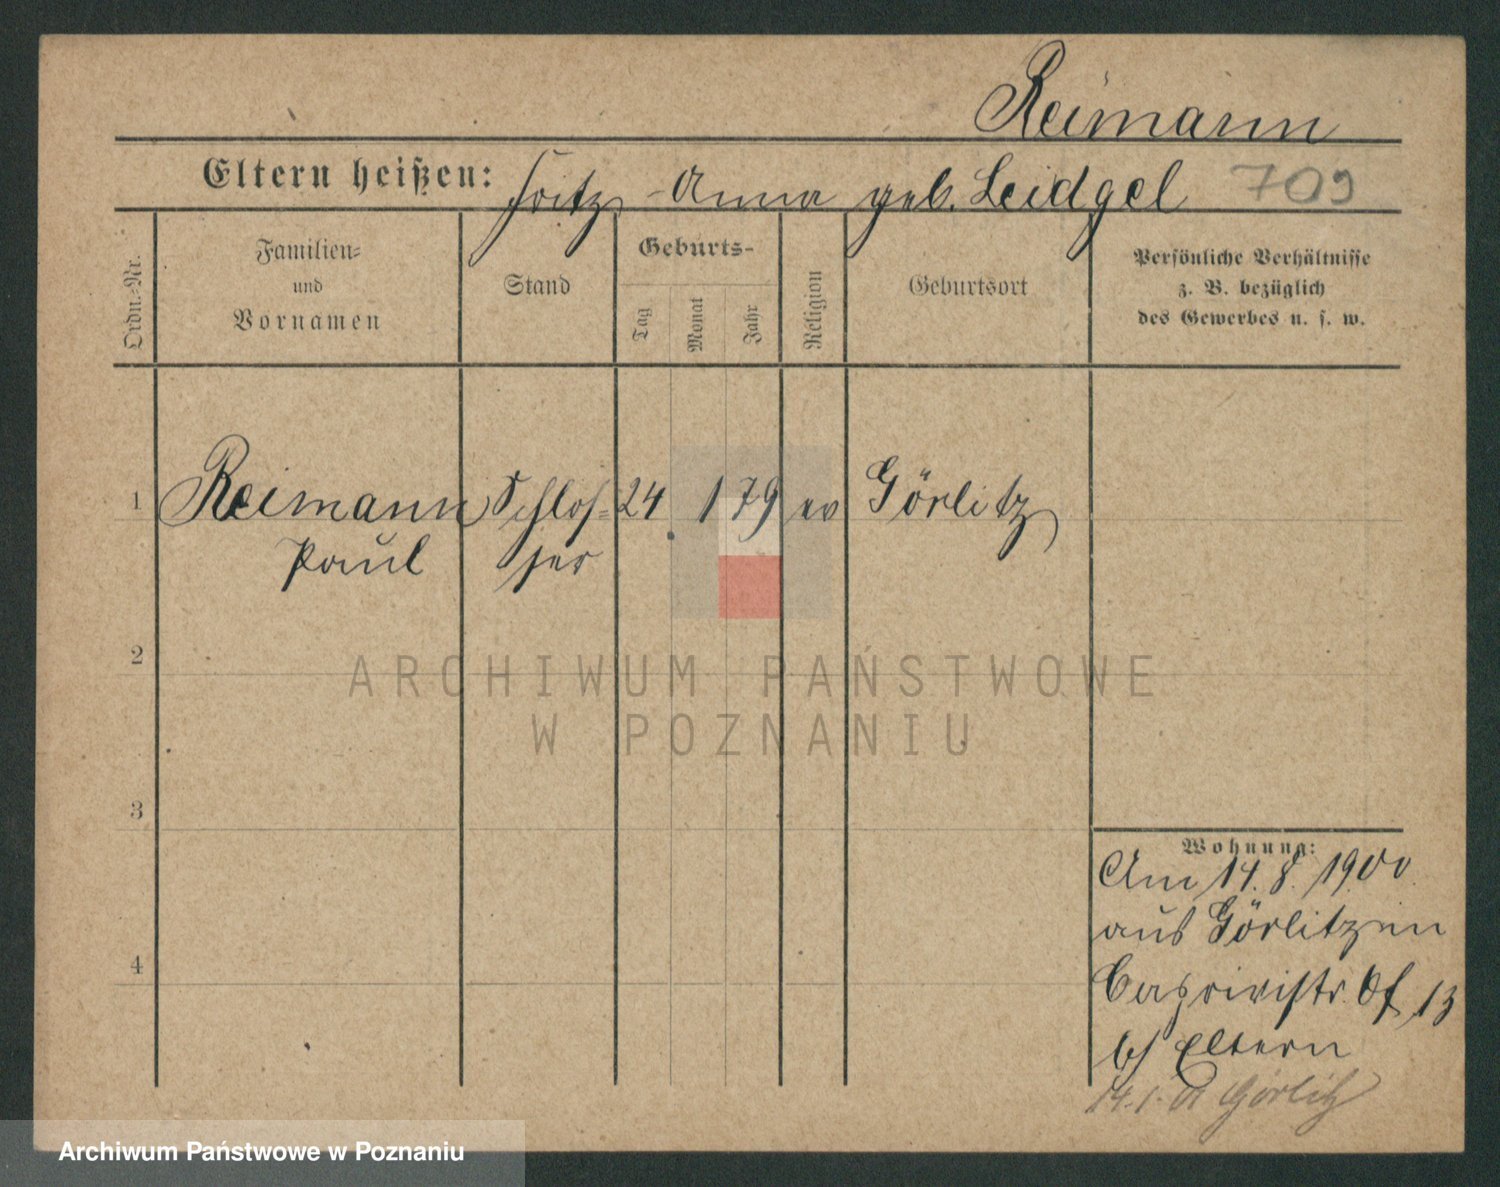 Reimann
Eltern heißen: Fritz - Anna geb. Leidgel 709
Ordn.-Nr.
Familien-
und
Vornamen
Stand
Geburts-
Tag
Monat
Jahr
Religion
Geburtsort
Persönliche Verhältnisse
z. B. bezüglich
des Gewerbes u. s. w.
1 Reimann Schlos- 24 1 79 ev Görlitz
Paul ser
2
ARCHIWUM PAŃSTWOWE
W POZNANIU
3
Wohnung:
Am 14. 8. 1900
aus Görlitz in
4
Caprivistr. 13
b/ Eltern
14.1. Görlitz
Archiwum Państwowe w Poznaniu